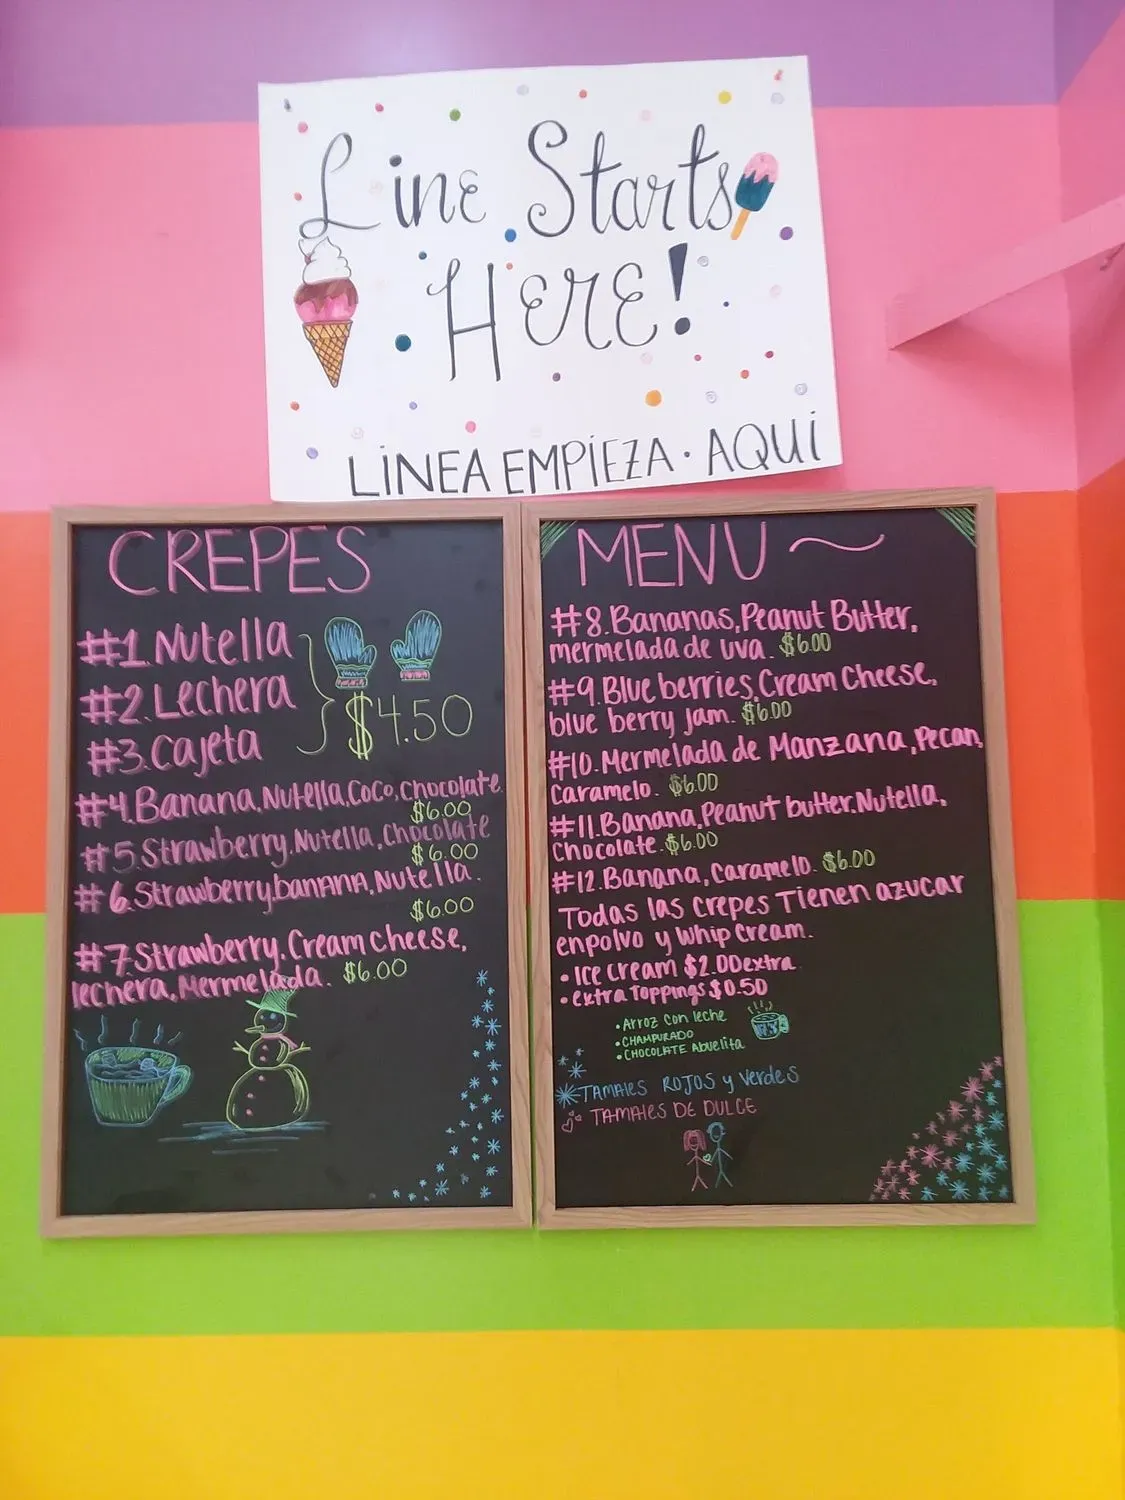 Line Starts
Here!
LINEA EMPIEZA · AQUI
CREPES
#1 Nutella
#2. Lechera
#3. Cajeta
$4.50
#4. Banana, Nutella, Coco, chocolate.
$6.00
#5. Strawberry, Nutella, Chocolate
$6.00
#6. Strawberry, banana, Nutella.
$6.00
#7. Strawberry, Cream cheese,
lechera, Mermelada. $6.00
MENU ~
#8. Bananas, Peanut Butter,
mermelada de uva. $6.00
#9. Blue berries, Cream Cheese,
blue berry jam. $6.00
#10. Mermelada de Manzana, Pecan,
Caramelo. $6.00
#11. Banana, Peanut butter, Nutella,
Chocolate. $6.00
#12. Banana, Caramelo. $6.00
Todas las crepes Tienen azucar
enpolvo y Whip Cream.
• Ice cream $2.00 extra
• extra Toppings $0.50
• Arroz con leche
• CHAMPURADO
• CHOCOLATE Abuelita
TAMALES ROJOS y Verdes
TAMALES DE DULCE